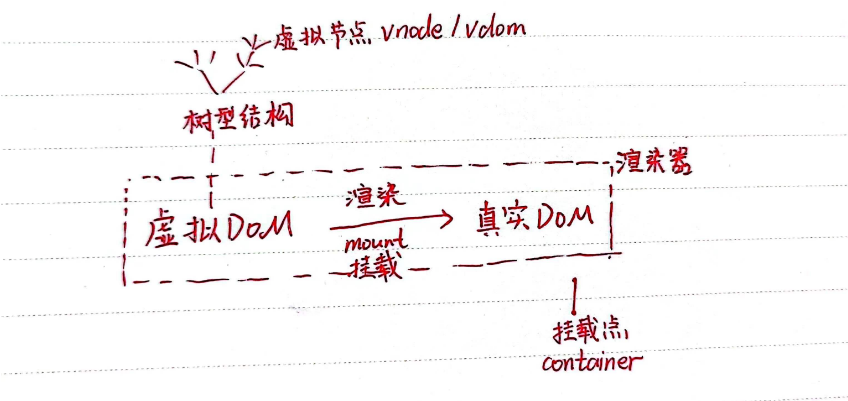 虚拟节点 vnode / vdom
树型结构
渲染器
虚拟DOM
渲染
mount
挂载
真实DOM
挂载点
container